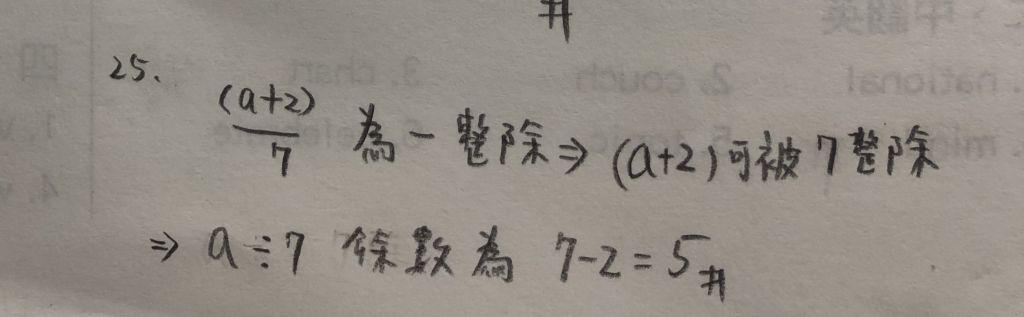 #
25.
(a+2)/7 為一整除⇒(a+2)可被7整除
⇒ a÷7 餘數為 7-2=5#
英體中、
national 2. couch 3. chart
四
1.
4.